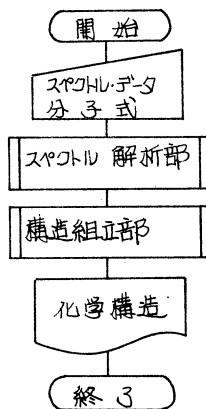 開始
スペクトル・データ
分子式
スペクトル 解析部
構造組立部
化学構造
終了